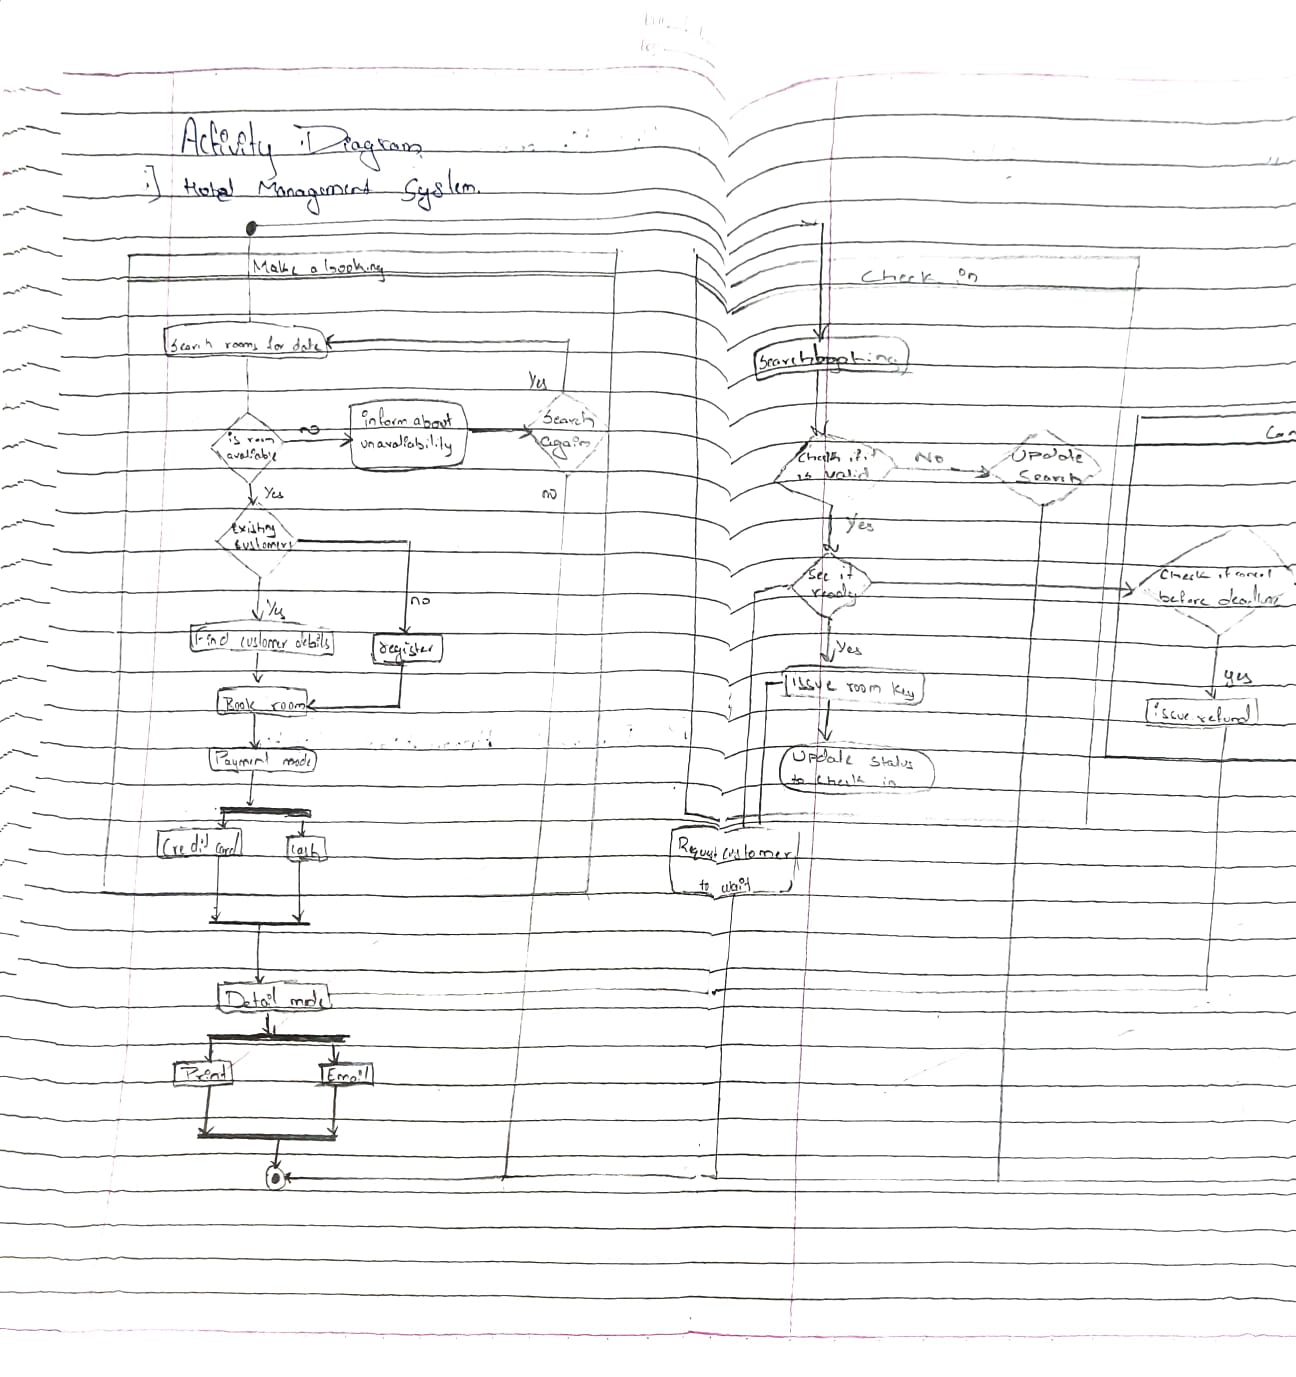 Activity Diagram
:] Hotel Management System.
Make a booking
Search rooms for date
Yes
is room
avaliable
no
inform about
unavaliability
Search
again
no
Yes
Existing
customers
no
Yes
Find customer details
register
Book room
Payment mode
Credit card
Cash
Detail mode
Print
Email
Check in
Search booking
Check if it
is valid
No
Update
Search
Yes
See if
ready
Yes
Issue room key
Update status
to check in
Request customer
to wait
Check if cancel
before deadline
yes
issue refund